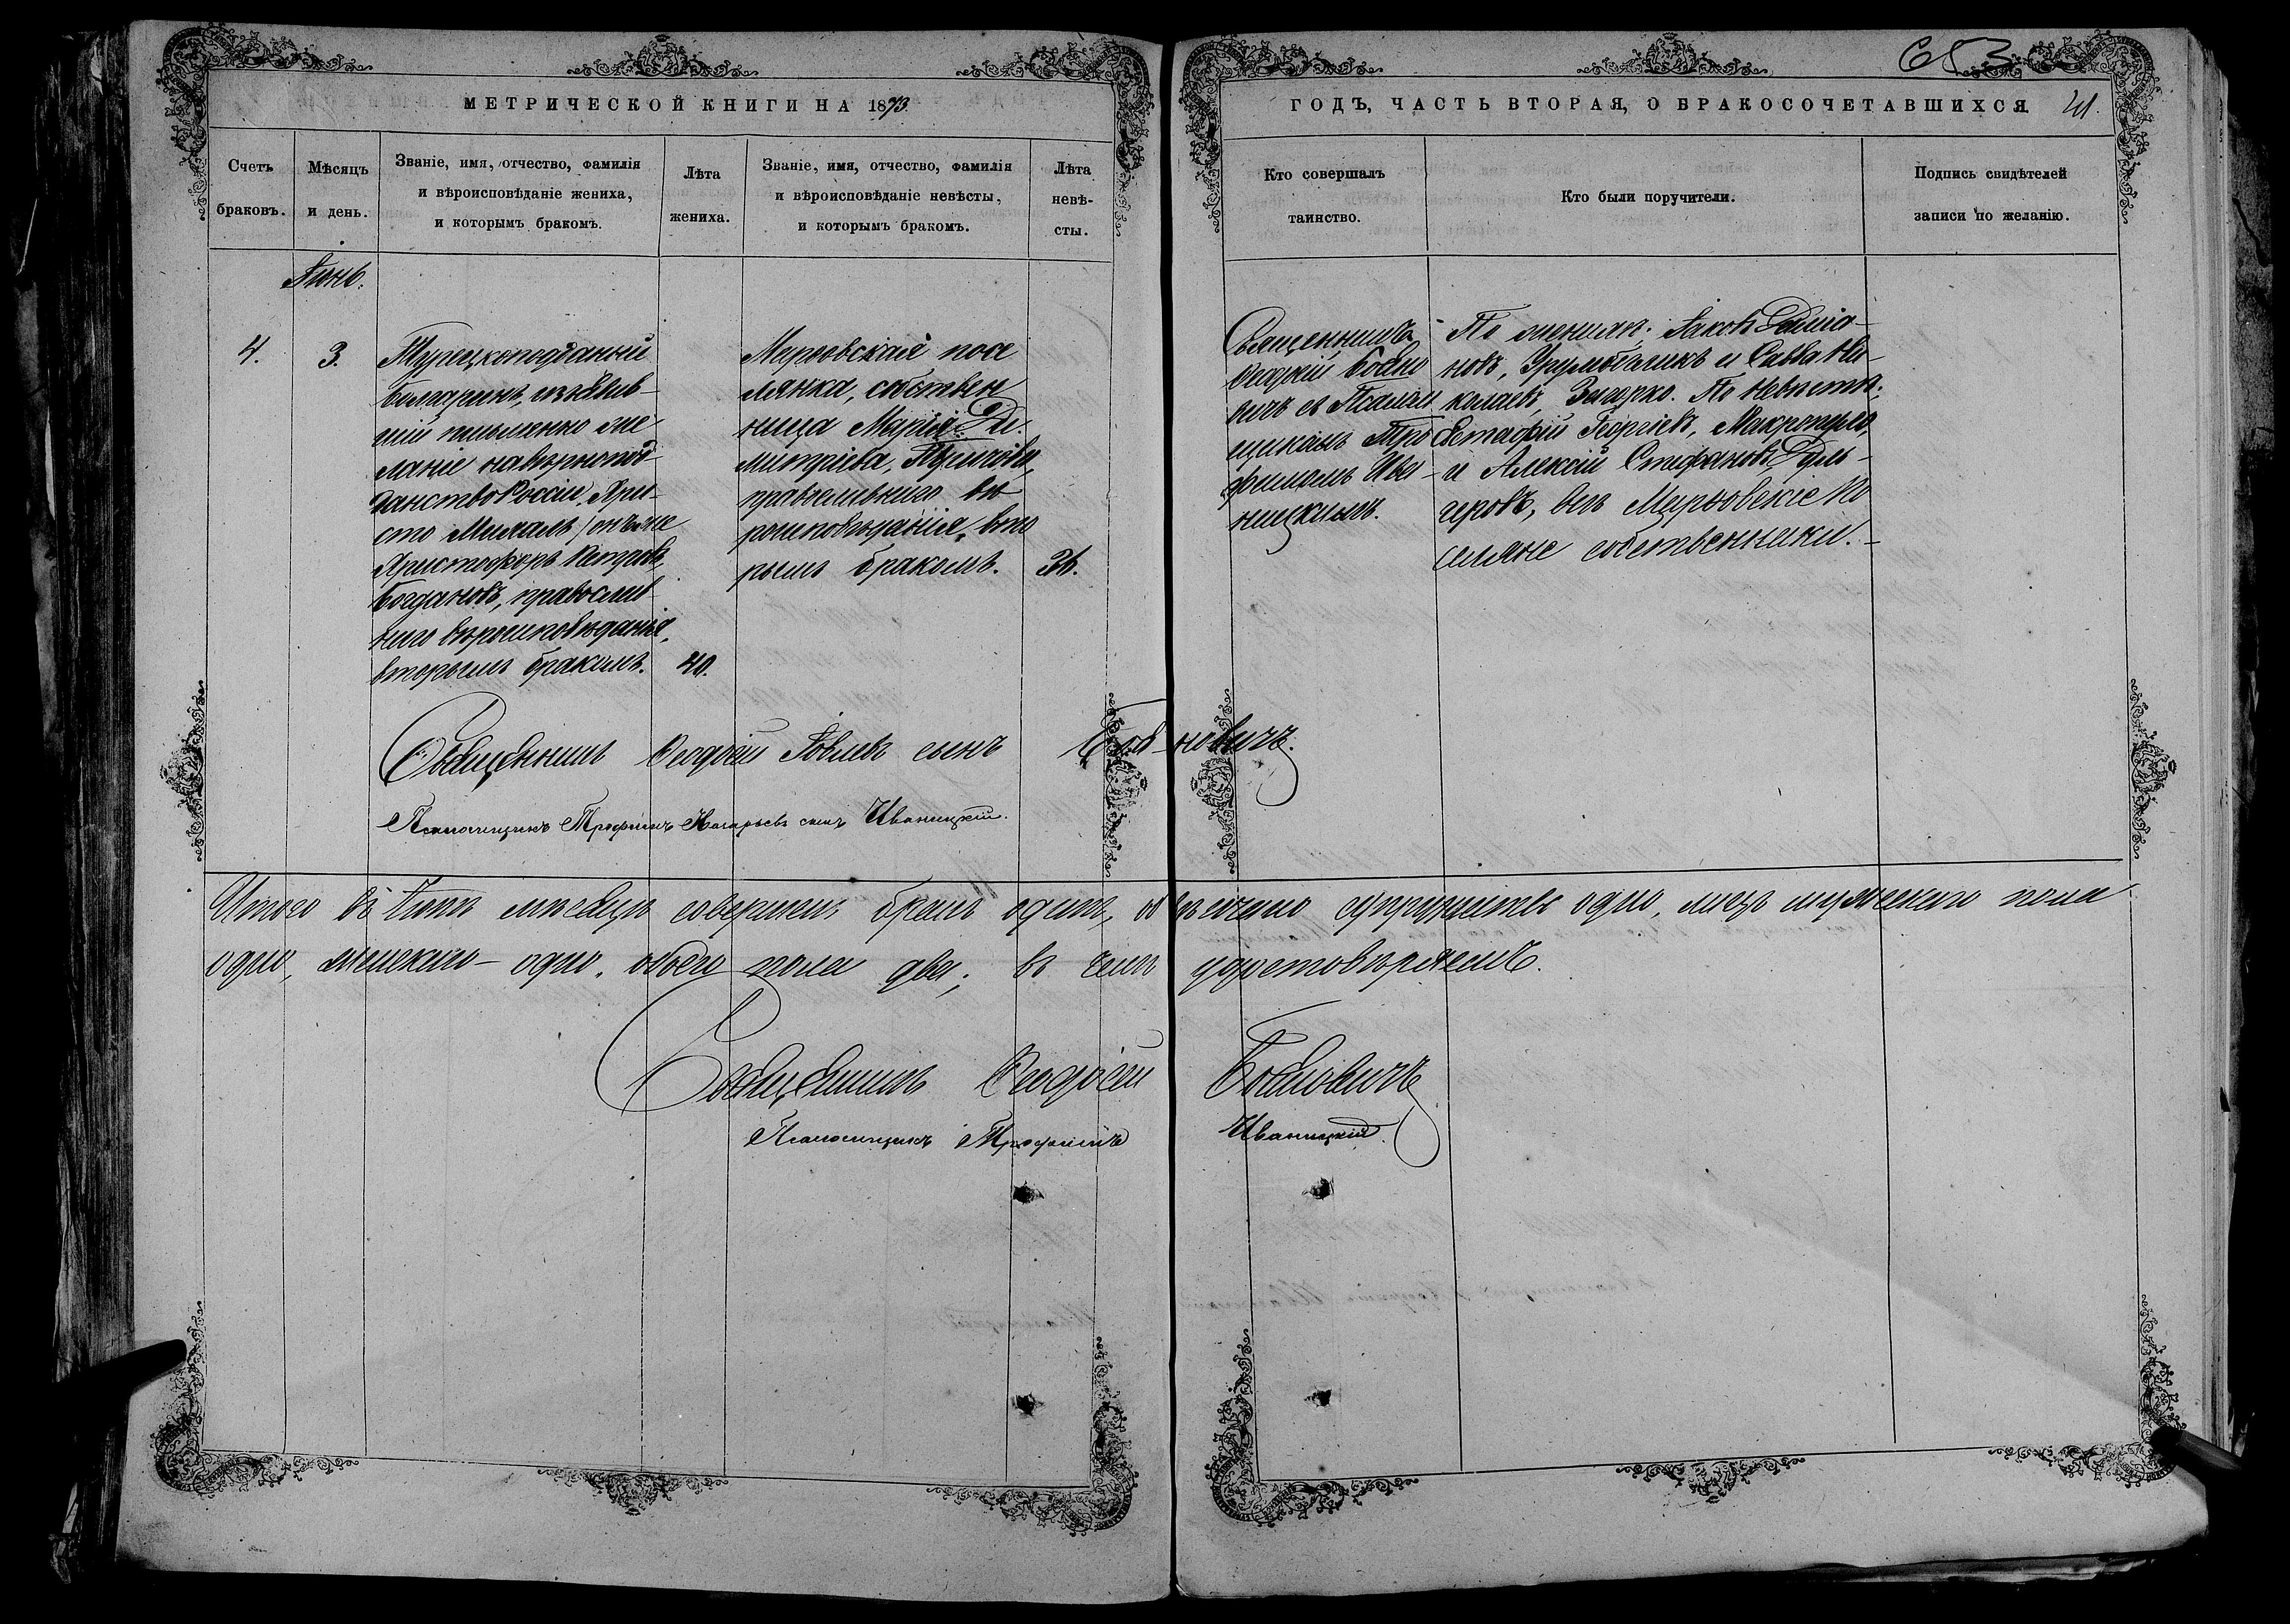 653
МЕТРИЧЕСКОЙ КНИГИ НА 1873
ГОДЪ, ЧАСТЬ ВТОРАЯ, О БРАКОСОЧЕТАВШИХСЯ.
Счетъ браковъ.
Мѣсяцъ и день.
Званіе, имя, отчество, фамилія
и вѣроисповѣданіе жениха,
и которымъ бракомъ.
Лѣта жениха.
Званіе, имя, отчество, фамилія
и вѣроисповѣданіе невѣсты,
и которымъ бракомъ.
Лѣта невѣ-
сты.
Кто совершалъ
таинство.
Кто были поручители.
Подпись свидѣтелей
записи по желанію.
Іюнь.
4.
3.
Турецкоподданый
болгаринъ, изъявив-
шій письменно же-
ланіе на вѣрнопод-
данство Россіи, Хри-
сто Михаль, онъ же
Христофоръ Петровъ
Богдановъ, православ-
наго вѣроисповѣданія,
вторымъ бракомъ.
40.
посе
лянка, собствен
ница Марія Ди-
митріева,
православнаго вѣ
роисповѣданія, вто
рымъ бракомъ.
36.
Священникъ
Ѳеодосій Боѣно
вичъ съ Псалом
щикомъ Тро
фимомъ Ива-
ницкимъ.
По женихѣ: Іаковъ
новъ, и Савва Ни-
колаевъ, По невѣстѣ:
Евстафій Георгіевъ, Макропуло,
и Алексій Стефановъ
геровъ, всѣ по
селяне собственники.
Священникъ Ѳеодосій Іовлевъ сынъ Боѣновичъ.
Псаломщикъ Трофимъ Назарьевъ сынъ Иваницкій.
Итого въ Іюнѣ мѣсяцѣ совершенъ бракъ одинъ, обвѣнчано супружество одно, лицъ мужескаго пола
одно, женскаго - одно, обоего пола два; въ чемъ удостовѣряемъ.
Священникъ Ѳеодосій Боѣновичъ
Псаломщикъ Трофимъ Иваницкій.